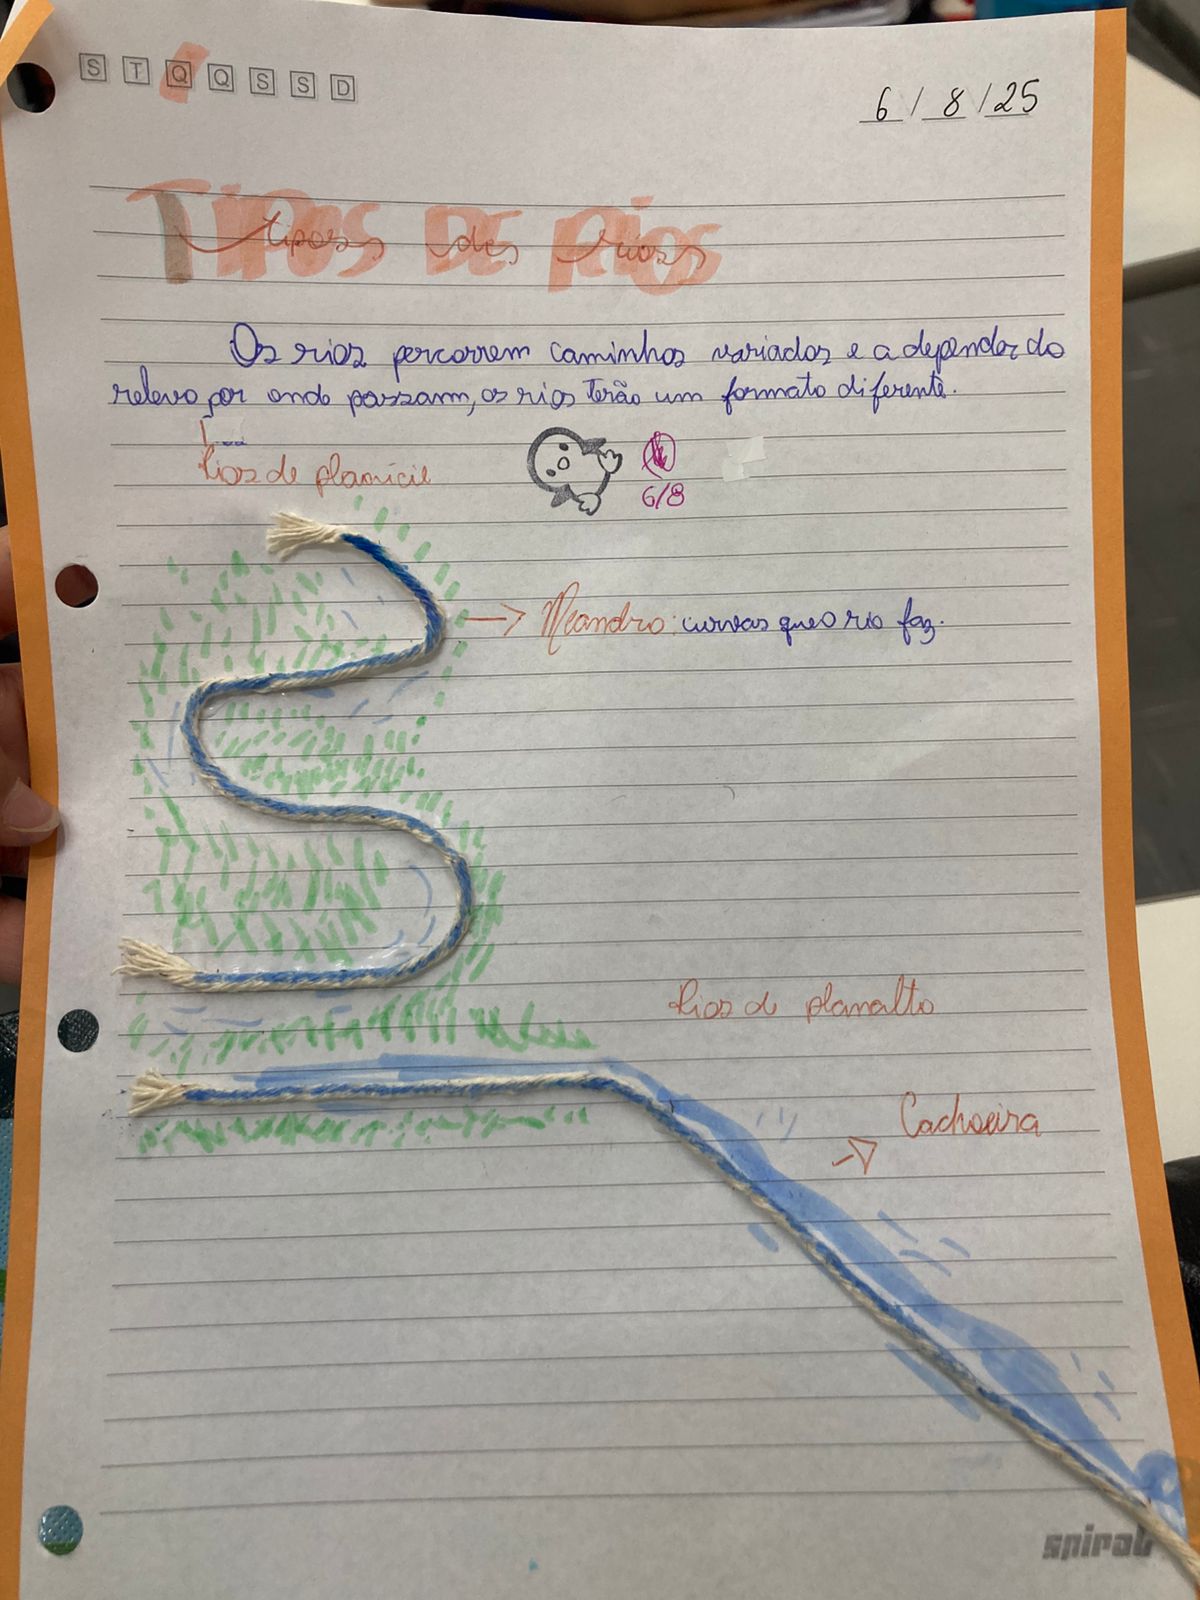 S T Q Q S S D
6/8/25
TIPOS DE RIOS
tipos des rios
Os rios percorrem caminhos variados e a depender do
relevo por onde passam, os rios terão um formato diferente.
Rios de planície
6/8
Meandro: curvas que o rio faz.
Rios de planalto
Cachoeira
spiral